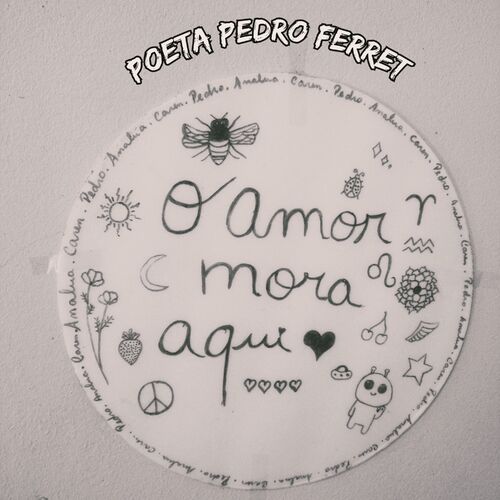 POETA PEDRO FERRET
Pedro. Analua. Caren. Pedro. Analua. Caren. Pedro. Analua. Caren. Pedro. Analua. Caren. Pedro. Analua. Caren. Pedro. Analua. Caren. Pedro. Analua. Caren. Pedro. Analua. Caren. Pedro. Analua. Caren. Analua. Caren.
O amor
mora
aqui